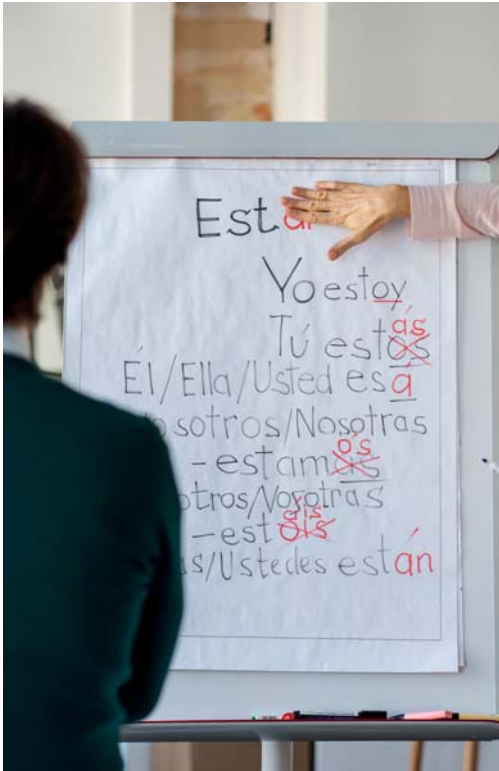 Estar
Yo estoy
ás
Tú estos
Él/Ella/Usted esá
sotros/Nosotras
ós
- estamas
otros/Nosotras
áis
- estois
as/Ustedes están